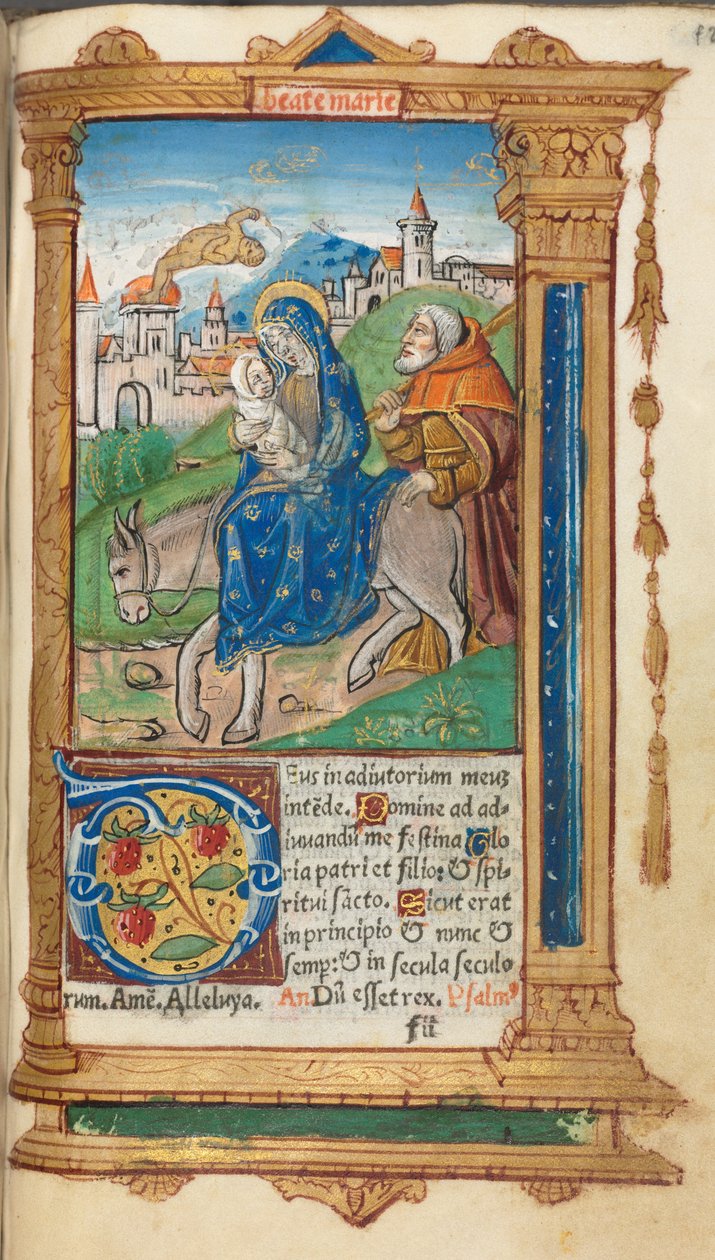 beate marie
Eus in adiutorium meuʒ
intēde. Domine ad ad-
iuuandū me festina Glo
ria patri et filio: & spi
ritui sācto. Sicut erat
in principio & nunc &
semp̱: & in secula seculo
rum. Amē. Alleluya. An Dū esset rex. Psalmꝰ
f ii